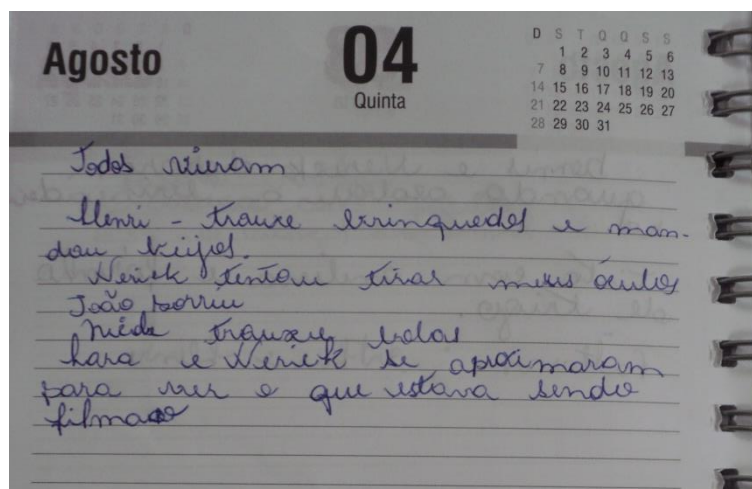 Agosto
04
Quinta
D S T Q Q S S
1 2 3 4 5 6
7 8 9 10 11 12 13
14 15 16 17 18 19 20
21 22 23 24 25 26 27
28 29 30 31
Todos vieram
Henri - trouxe brinquedos e man-
dou beijos.
Neriek tentou tirar meus óculos
João sorriu
trouxe
Lara e Neriek se aproximaram
para ver o que estava sendo
filmado